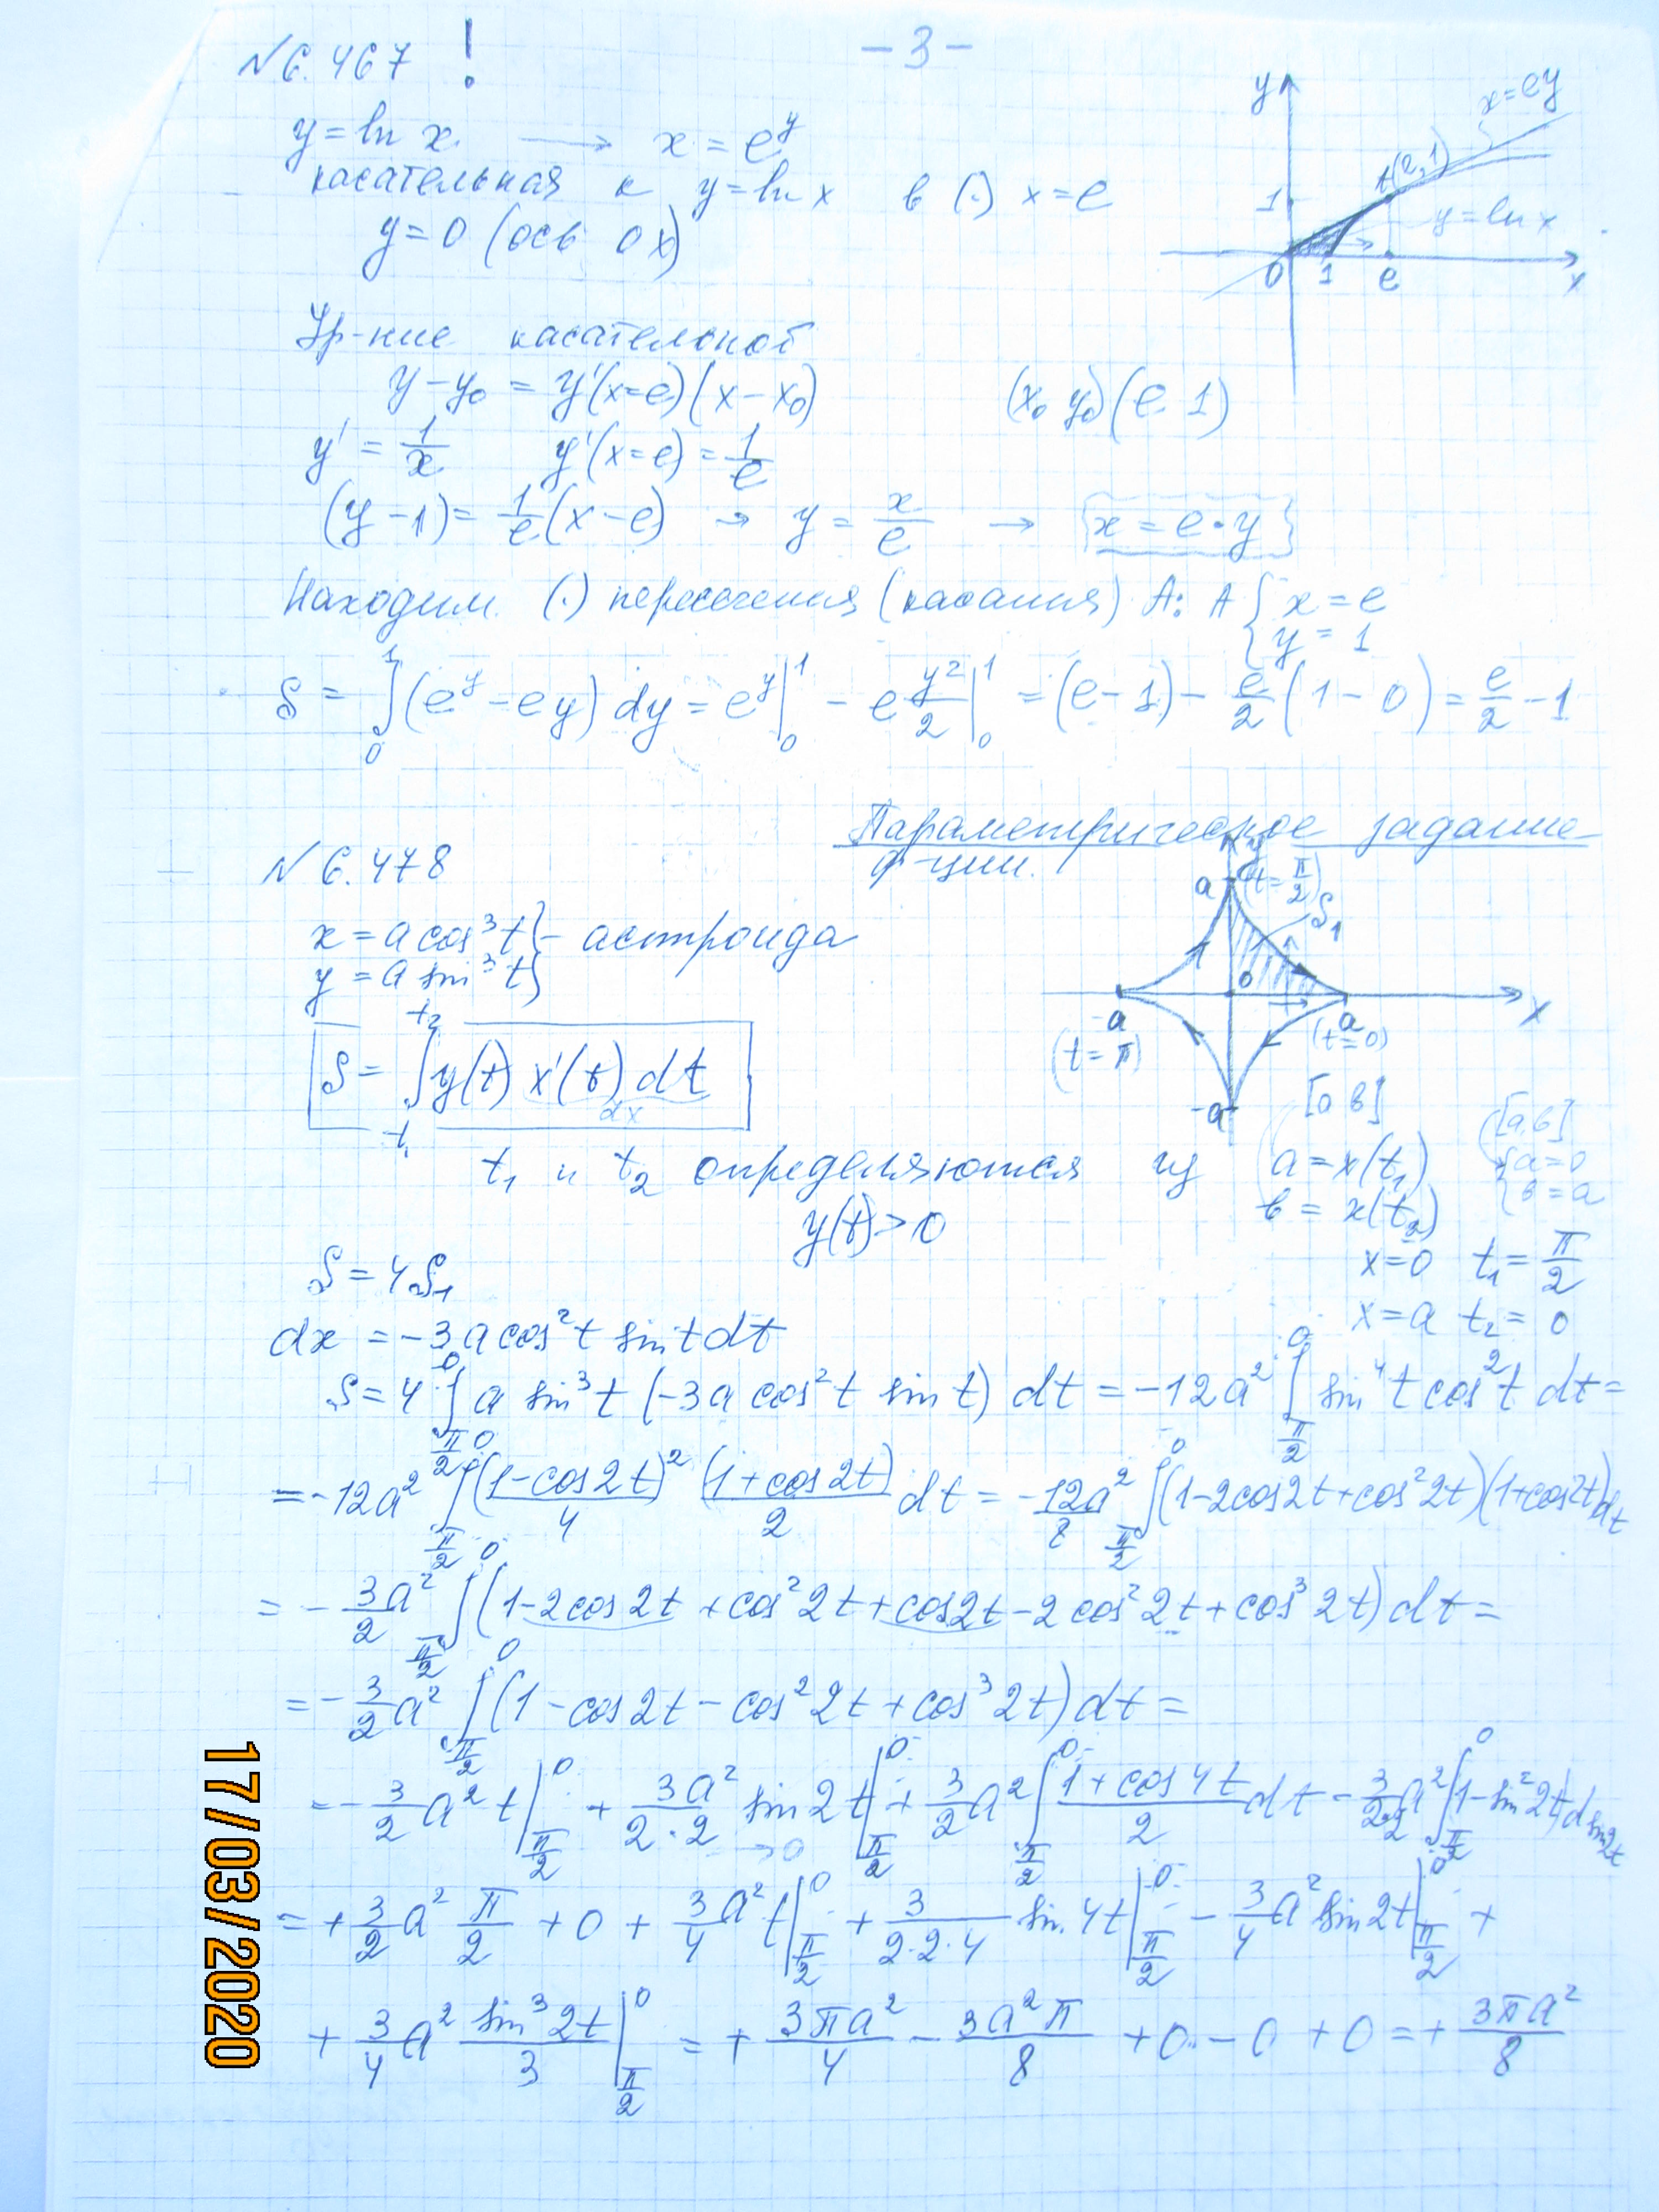 - 3 -
N 6.467 !
y = ln x → x = e^y
касательная к y = ln x в (·) x = e
y = 0 (ось 0x)
y
x = ey
A(e,1)
1
y = ln x
0 1 e x
Ур-ние касательной
y - y₀ = y'(x=e)(x - x₀) (x₀ y₀)(e 1)
y' = 1/x y'(x=e) = 1/e
(y - 1) = 1/e (x - e) → y = x/e → {x = e·y}
Находим (·) пересечения (касания) A: A { x = e
y = 1
S = ∫₀¹ (e^y - ey) dy = e^y |₀¹ - e y²/2 |₀¹ = (e - 1) - e/2 (1 - 0) = e/2 - 1
Параметрическое задание
ф-ции.
N 6.478
x = a cos³t } - астроида
y = a sin³t }
a (t = π/2)
S₁
0
-a a x
(t = π) (t = 0)
-a
S = ∫_{t₁}^{t₂} y(t) x'(t) dt
dx
[0 в] [a,в]
t₁ и t₂ определяются из a = x(t₁) { a = 0
в = x(t₂) { в = a
y(t) > 0
x = 0 t₁ = π/2
S = 4S₁
x = a t₂ = 0
dx = -3a cos²t sin t dt
S = 4·∫_{π/2}^0 a sin³t (-3a cos²t sin t) dt = -12a² ∫_{π/2}^0 sin⁴t cos²t dt =
= -12a² ∫_{π/2}^0 (1-cos2t)²/4 (1+cos2t)/2 dt = -12a²/8 ∫_{π/2}^0 (1-2cos2t+cos²2t)(1+cos2t)dt
= - 3a²/2 ∫_{π/2}^0 (1-2cos2t+cos²2t+cos2t-2cos²2t+cos³2t)dt =
= - 3/2 a² ∫_{π/2}^0 (1-cos2t-cos²2t+cos³2t)dt =
= - 3/2 a² t |_{π/2}^0 + 3a²/2·2 sin2t |_{π/2}^0 + 3/2 a² ∫_{π/2}^0 (1+cos4t)/2 dt - 3/2·2 a² ∫_{π/2}^0 (1-sin²2t)d sin2t
→0
= + 3/2 a² π/2 + 0 + 3/4 a² t |_{π/2}^0 + 3/2·2·4 sin 4t |_{π/2}^0 - 3/4 a² sin2t |_{π/2}^0 +
+ 3/4 a² sin³2t/3 |_{π/2}^0 = + 3πa²/4 - 3a²π/8 + 0 - 0 + 0 = + 3πa²/8
17/03/2020